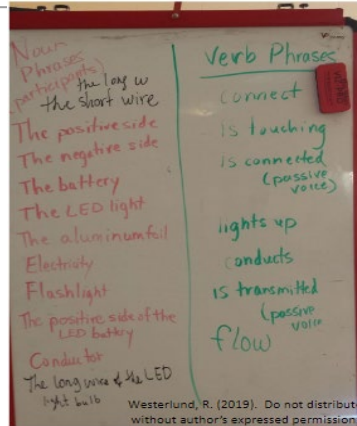 Noun
Phrases
(participants)
the long w
the short wire
The positive side
The negative side
The battery
The LED light
The aluminum foil
Electricity
Flashlight
The positive side of the
LED battery
Conductor
The long wire of the LED
light bulb
Verb Phrases
connect
is touching
is connected
(passive
voice)
lights up
conducts
is transmitted
(passive
voice
flow
Westerlund, R. (2019). Do not distribute
without author's expressed permission